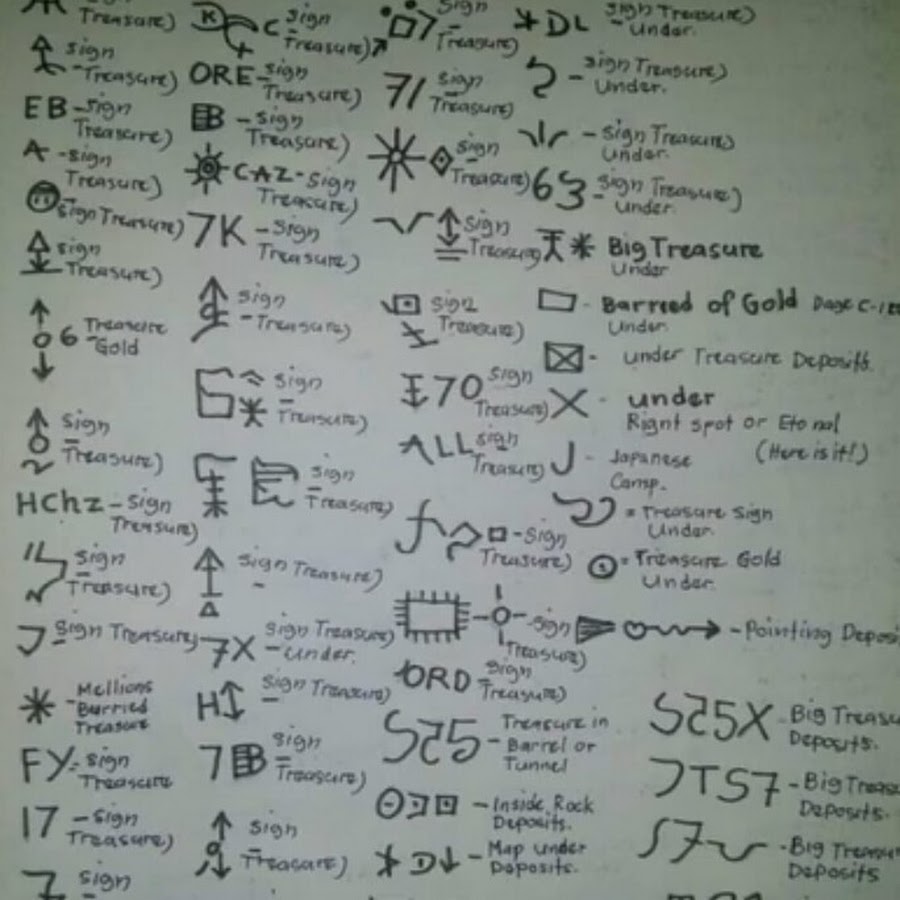 Treasure)
Sign
Treasure)
EB - Sign
Treasure)
A - Sign
Treasure)
Sign Treasure)
Sign
Treasure)
6 Treasure
Gold
Sign
Treasure)
HChz - Sign
Treasure)
Sign
Treasure)
Sign Treasure)
Mellions
Burried
Treasure
FY - Sign
Treasure
17 - Sign
Treasure)
Sign
K C Sign
Treasure)
ORE - Sign
Treasure)
B - Sign
Treasure)
CAZ - Sign
Treasure)
7K - Sign
Treasure)
Sign
- Treasure)
Sign
Treasure)
Sign
Treasure)
Sign Treasure)
7X Sign Treasure)
- Under.
H Sign Treasure)
7B Sign
Treasure)
Sign
Treasure)
Sign
7 Treasure)
71 Sign
Treasure)
Sign
Treasure)
Sign
Treasure)
Sign
Treasure)
I70 Sign
Treasure)
ALL Sign
Treasure)
- Sign
Treasure)
- Sign
Treasure)
ORD - Sign
Treasure)
S25 - Treasure in
Barrel or
Tunnel
- Inside Rock
Deposits.
D - Map under
Deposits.
DL Sign Treasure)
Under.
- Sign Treasure)
Under.
- Sign Treasure)
Under.
63 - Sign Treasure)
Under.
Big Treasure
Under
- Barreed of Gold
Under.
- under Treasure Deposits.
X - under
Rignt spot or
(Here is it!)
J - Japanese
Camp.
= Treasure Sign
Under.
= Treasure Gold
Under.
- Pointing Deposi
S25X - Big Treasu
Deposits.
JTS7 - Big Treasu
Deposits.
- Big Treasu
Deposits